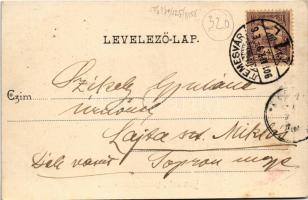 320
LEVELEZŐ-LAP.
TEMESVÁR
Czim:
Székely Gyuláné
úrnőnek
Lajta szt. Miklós
Déli vasút Sopron megye